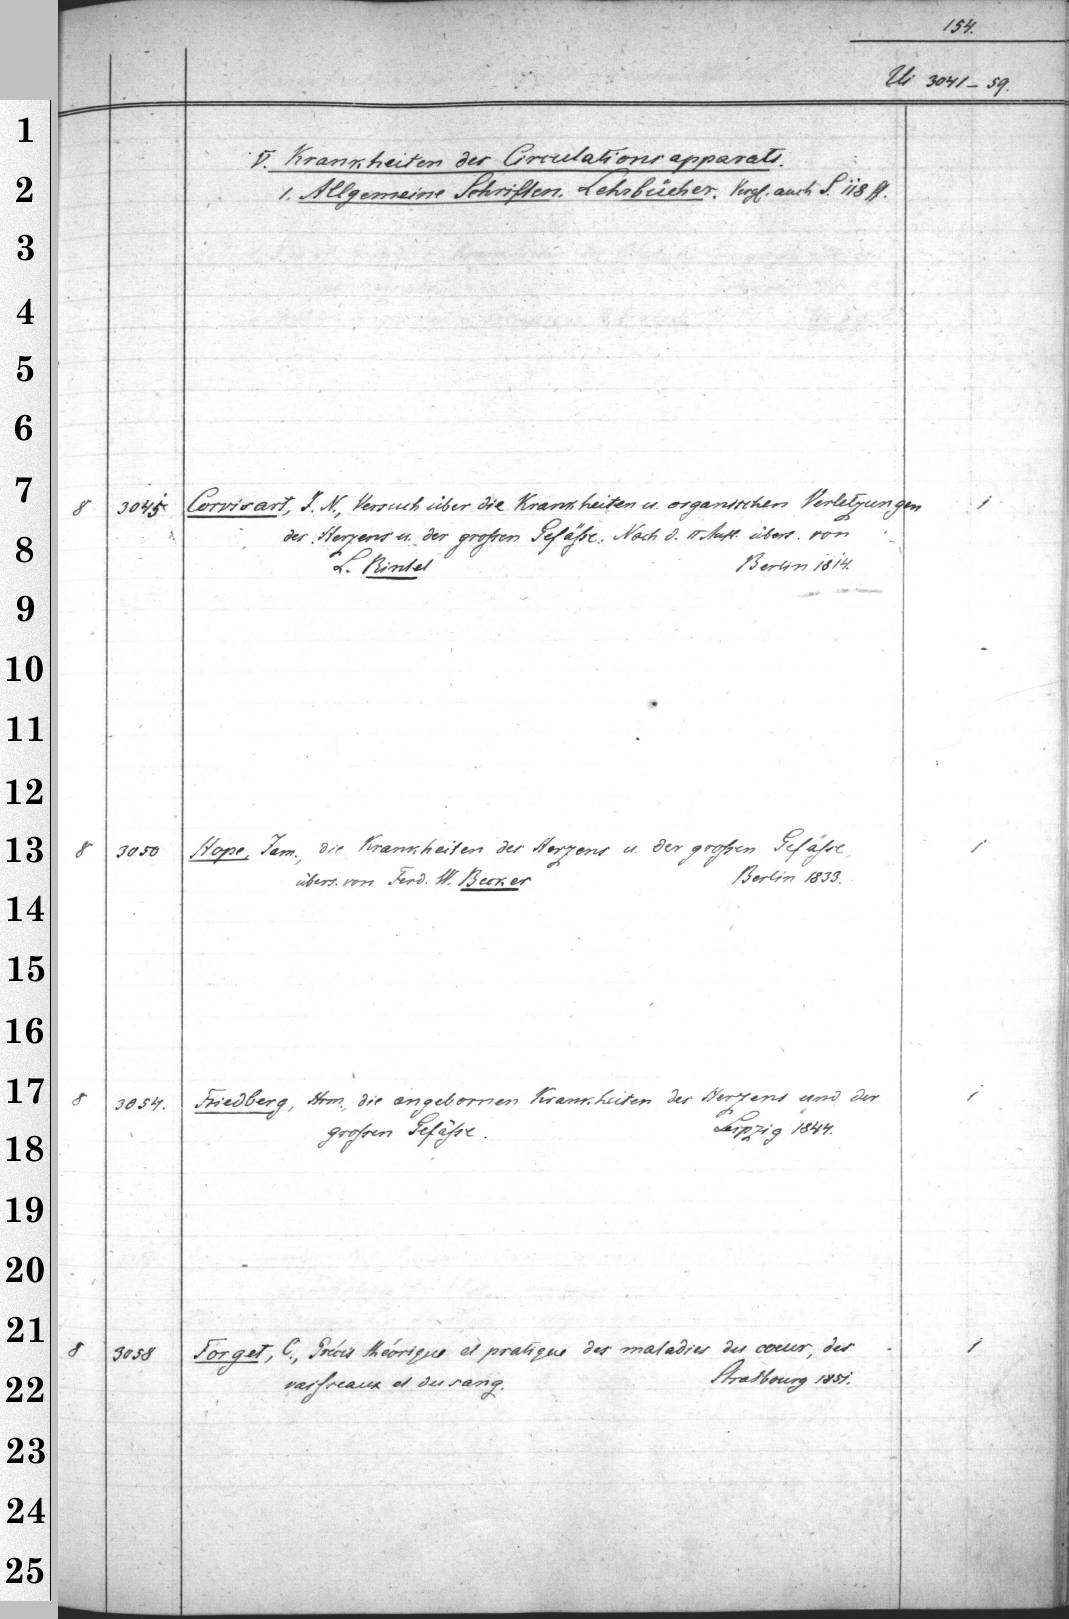 154.
Ui 3041-59.
V. Krankheiten des Circulationsapparats.
1. Allgemeine Schriften. Lehrbücher. Vergl. auch S. 118 ff.
8 3045 Corvisart, J. N., Versuch über die Krankheiten u. organischen Verletzungen 1
des Herzens u. der großen Gefäße. Nach d. II Aufl. übers. von
L. Rintel Berlin 1814.
8 3050 Hope, Jam., die Krankheiten des Herzens u. der großen Gefäße, 1
übers. von Ferd. W. Becker Berlin 1833.
8 3054. Friedberg, Hrm., die angebornen Krankheiten des Herzens und der 1
großen Gefäße. Leipzig 1844.
8 3058 Forget, C., Précis théorique et pratique des maladies du coeur, des 1
vaisseaux et du sang. Strasbourg 1851.
1
2
3
4
5
6
7
8
9
10
11
12
13
14
15
16
17
18
19
20
21
22
23
24
25